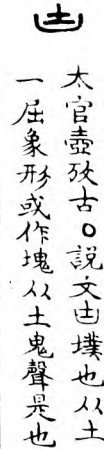 凷
太官壺攷古〇説文凷墣也从土
一屈象形或作塊从土鬼聲是也